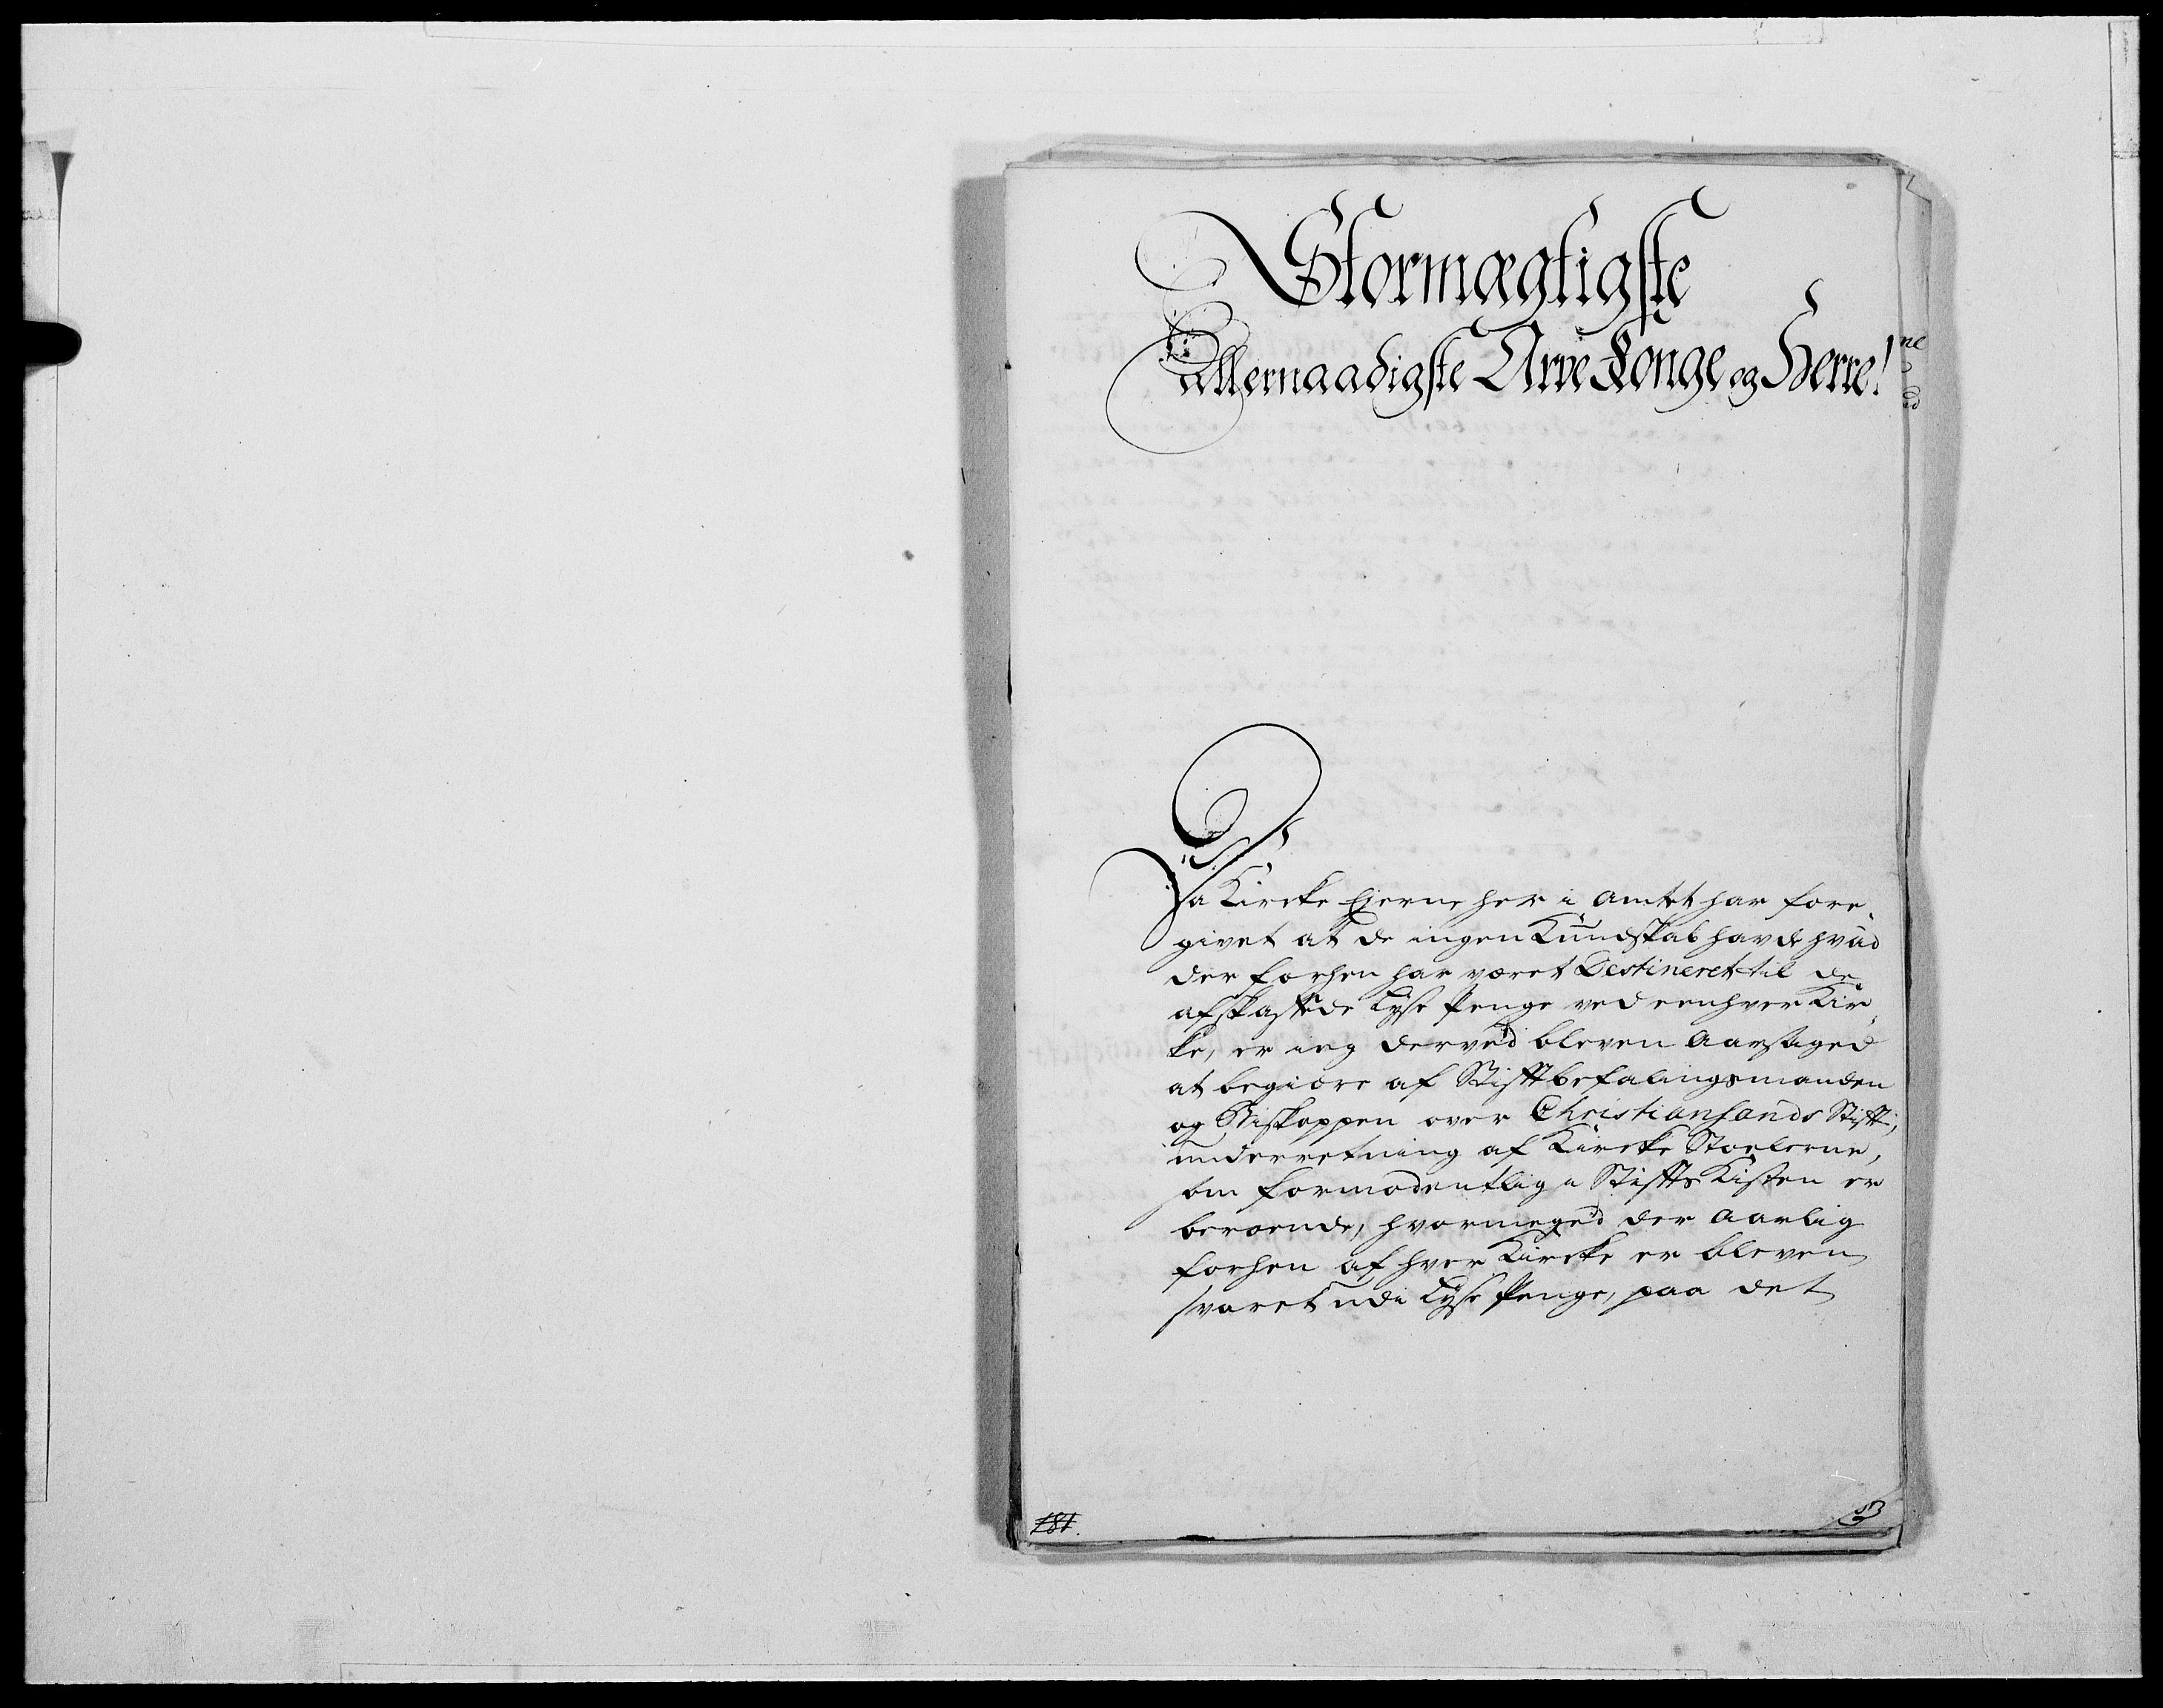 Stormægtigste
Allernaadigste Arve Konge og Herre!
Da Kircke Ejerne her i Amtet har fore
givet at de ingen Kundskab havde hvad
der forhen har været Destineret til de
afskaffede Lyse Penge ved eenhver Kir
ke, er ieg derved bleven Aarsaged
at begiære af Stiftbefalingsmanden
og Biskoppen over Christiansands Stift,
underretning af Kircke Stoelerne,
som formodentlig i Stifts Kisten er
beroende, hvormeged der Aarlig
forhen af hver Kircke er bleven
svaret udi Lyse Penge, paa det
181.